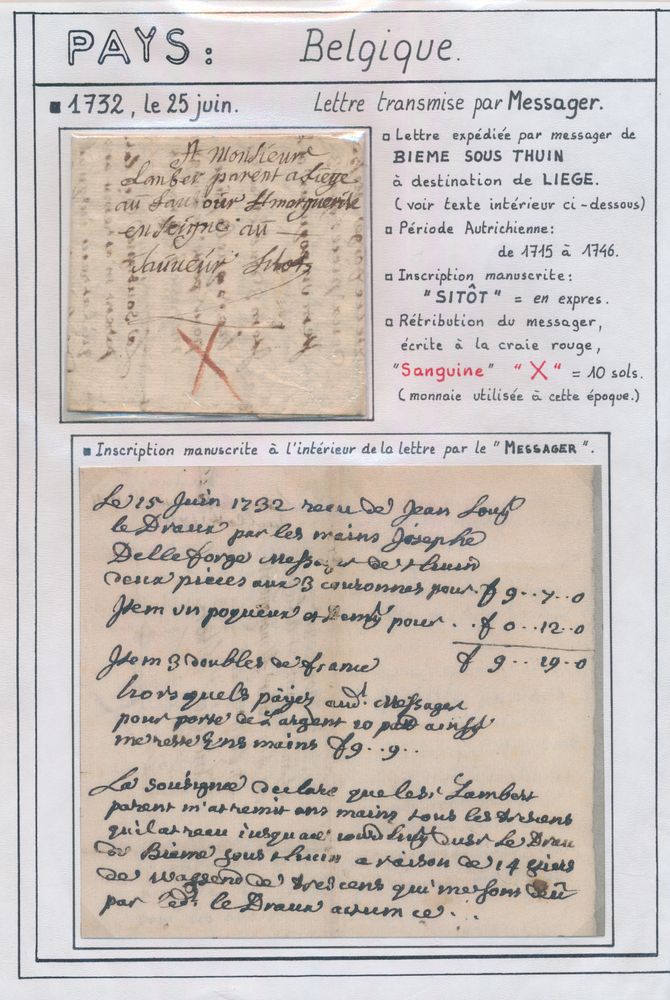 PAYS: Belgique.
▪ 1732, le 25 juin. Lettre transmise par Messager.
A Monsieur
Lamber parent a Liege
au faubour St marguerite
enseigne au
Sauveur Sitot
X
▫ Lettre expédiée par messager de
BIEME SOUS THUIN
à destination de LIEGE.
(voir texte intérieur ci-dessous)
▫ Période Autrichienne:
de 1715 à 1746.
▫ Inscription manuscrite:
"SITÔT" = en expres.
▫ Rétribution du messager,
écrite à la craie rouge,
"Sanguine" "X" = 10 sols.
(monnaie utilisée à cette époque.)
▪ Inscription manuscrite à l'intérieur de la lettre par le "MESSAGER".
Le 25 Juin 1732 receu de Jean Louy
le Draux par les mains Josephe
Delleforge Messager de thuin
deux pieces aux 3 couronnes pour f 9--7--0
Item un poqueux et pour . . f 0--12--0
f 9--19-0
Item 3 doubles de france
hors quels payez aud. Messager
pour porte de l argent 10 patt ainsy
me reste Ens mains f 9--9--
La sousigne declare que le sr Lambert
parent m'at remit ens mains tous les trescens
qu'il at receu iusqu
de Bieme sous thuin a raison de 14
de de trescens qui me sont deu
par led. le Draux actum ce . . .